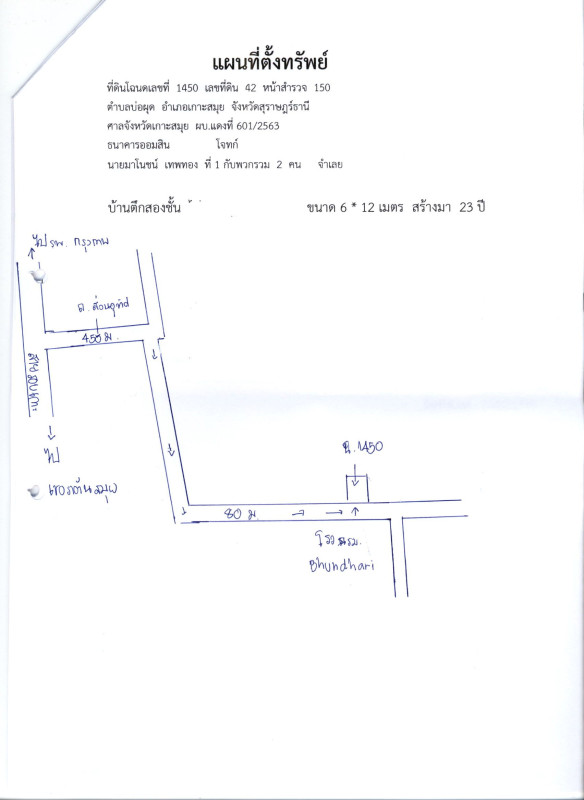 แผนที่ตั้งทรัพย์
ที่ดินโฉนดเลขที่ 1450 เลขที่ดิน 42 หน้าสำรวจ 150
ตำบลบ่อผุด อำเภอเกาะสมุย จังหวัดสุราษฎร์ธานี
ศาลจังหวัดเกาะสมุย ผบ.แดงที่ 601/2563
ธนาคารออมสิน โจทก์
นายมาโนชน์ เทพทอง ที่ 1 กับพวกรวม 2 คน จำเลย
บ้านตึกสองชั้น ขนาด 6 * 12 เมตร สร้างมา 23 ปี
ไป รพ. กรุงเทพ
450 ม.
ไป
ฉ.1450
80 ม.
โรงแรม
Bhundhari